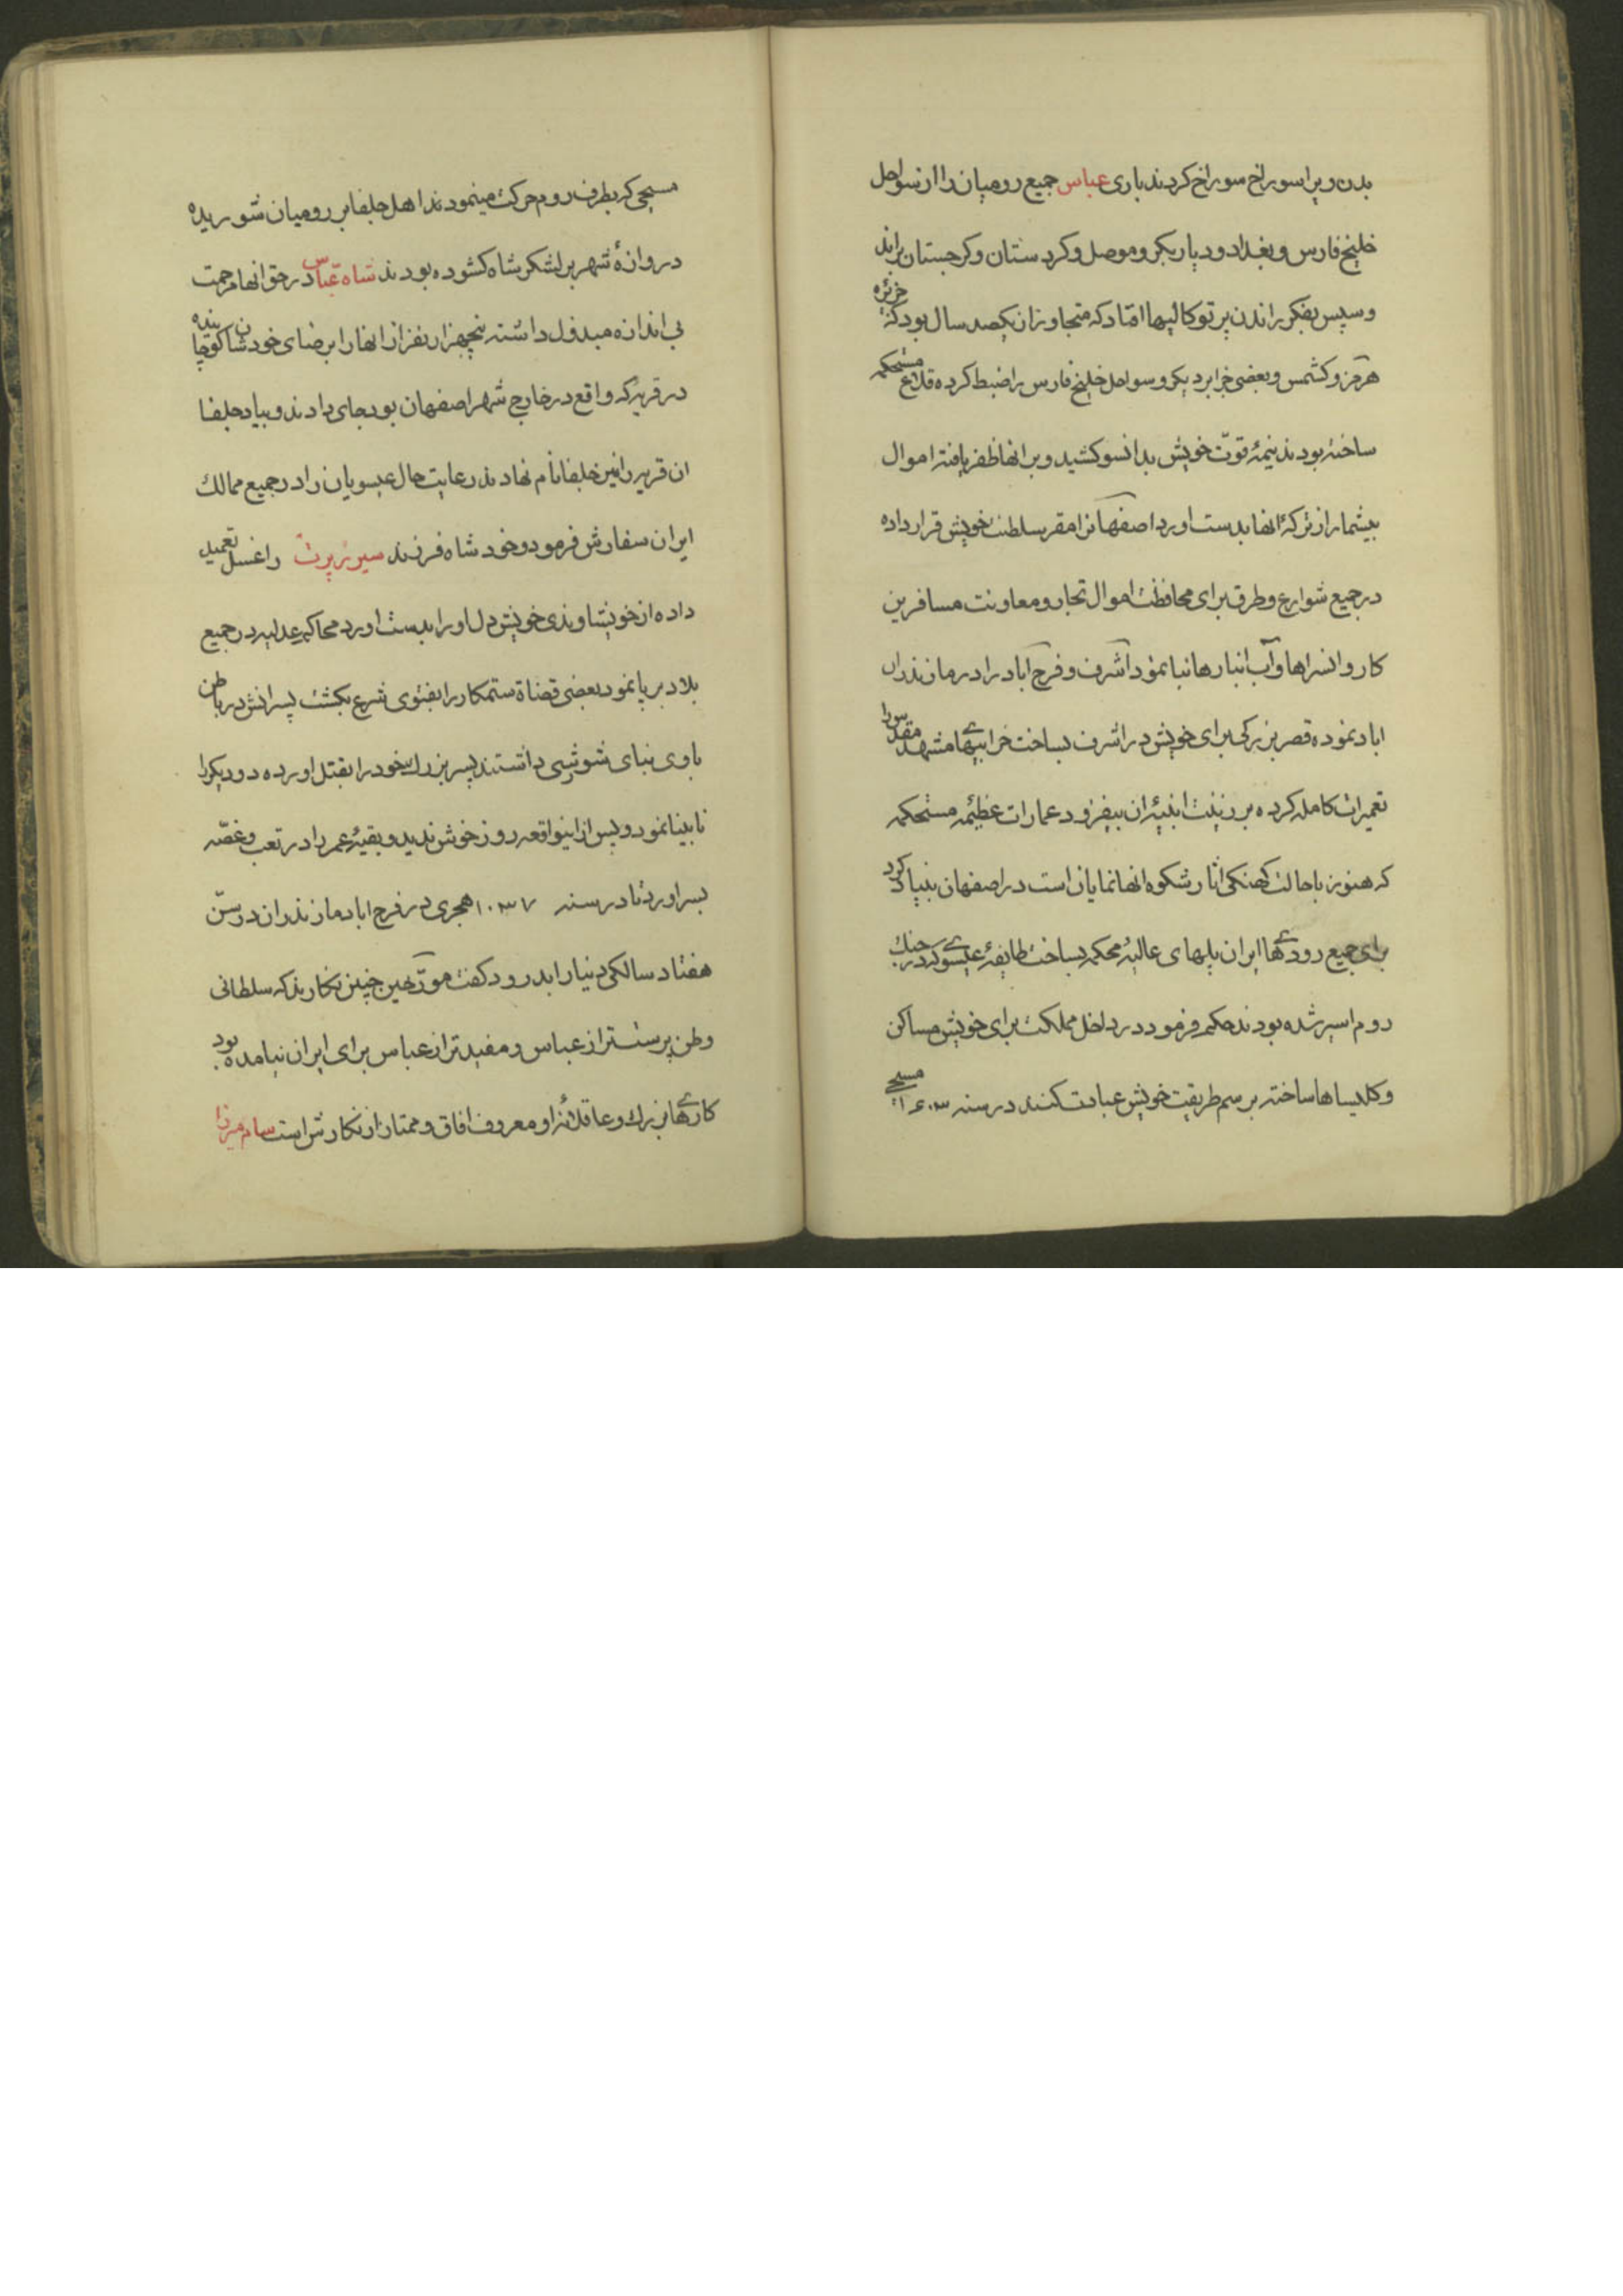 بدن ویرا سوراخ سوراخ کردند باری عباس جمیع رومیان را از سواحل
خلیج فارس و بغداد و دیاربکر و موصل و کردستان و کرجستان براند
و سپس بفکر راندن پرتوکالیها افتاد که متجاوز از یکصد سال بود که جزیره
هرمز و کشمس و بعضی جزایر دیکر و سواحل خلیج فارس را ضبط کرده قلاع مستحکمه
ساخته بودند نیمهٔ قوّت خویش بدانسو کشید و بر انها ظفر یافته اموال
بیشمار از ترکهٔ انها بدست اورد اصفهانرا مقر سلطنت خویش قرار داده
در جمیع شوارع و طرق برای محافظت اموال تجار و معاونت مسافرین
کاروانسراها و آب انبارها بنا نمود آشرف و فرح آباد را در مازندران
اباد نموده قصر بزرکی برای خویش در اشرف بساخت خرابیهای مشهد مقدس را
تعمیرات کامله کرده بر زینت ابنیهٔ ان بیفزود عمارات عظیمهٔ مستحکمه
که هنوز با حالت کهنکی اثار شکوه انها نمایان است در اصفهان بنیاد کرد
برای جمیع رودهای ایران پلهای عالیهٔ محکمه بساخت طایفهٔ عیسوی که در جنک
روم اسیر شده بودند حکم فرمود در داخل مملکت برای خویش مساکن
و کلیساها ساخته برسم طریقت خویش عبادت کنند در سنه ۱۶۰۳ مسیحی
مسیحی که بطرف روم حرکت مینمودند اهل جلفا بر رومیان شوریده
دروازهٔ شهر بر لشکر شاه کشوده بودند شاه عباس در حق انها مرحمت
بی اندازه مبذول داشته پنجهزار نفر از انها را برضای خودشان کوچانیده
در قریه که واقع در خارج شهر اصفهان بود جای دادند و بیاد جلفا
ان قریه را نیز جلفا نام نهادند رعایت حال عیسویان را در جمیع ممالک
ایران سفارش فرمود و خود شاه فرزند سیر زبرت را غسل تعمید
داده از خویشاوندی خویش دل او را بدست اورد محاکم عدلیه در جمیع
بلاد برپا نمود بعضی قضاة ستمکار را بفتوی شرع بکشت پسرانش در باطن
با وی بنای شورشی داشتند پسر بزرک خود را بقتل اورده دو دیکر را
نابینا نمود و پس از اینواقعه روز خوش ندید و بقیهٔ عمر را در تعب و غصّه
بسر اورد تا در سنه ۱۰۳۷ هجری در فرح اباد مازندران در سنّ
هفتاد سالکی دنیا را بدرود کفت مورّخین چنین نکارند که سلطانی
وطن پرست تر از عباس و مفید تر از عباس برای ایران نیامده بود
کارهای بزرک و عاقلانهٔ او معروف افاق و ممتاز از نکارش است سام میرزا